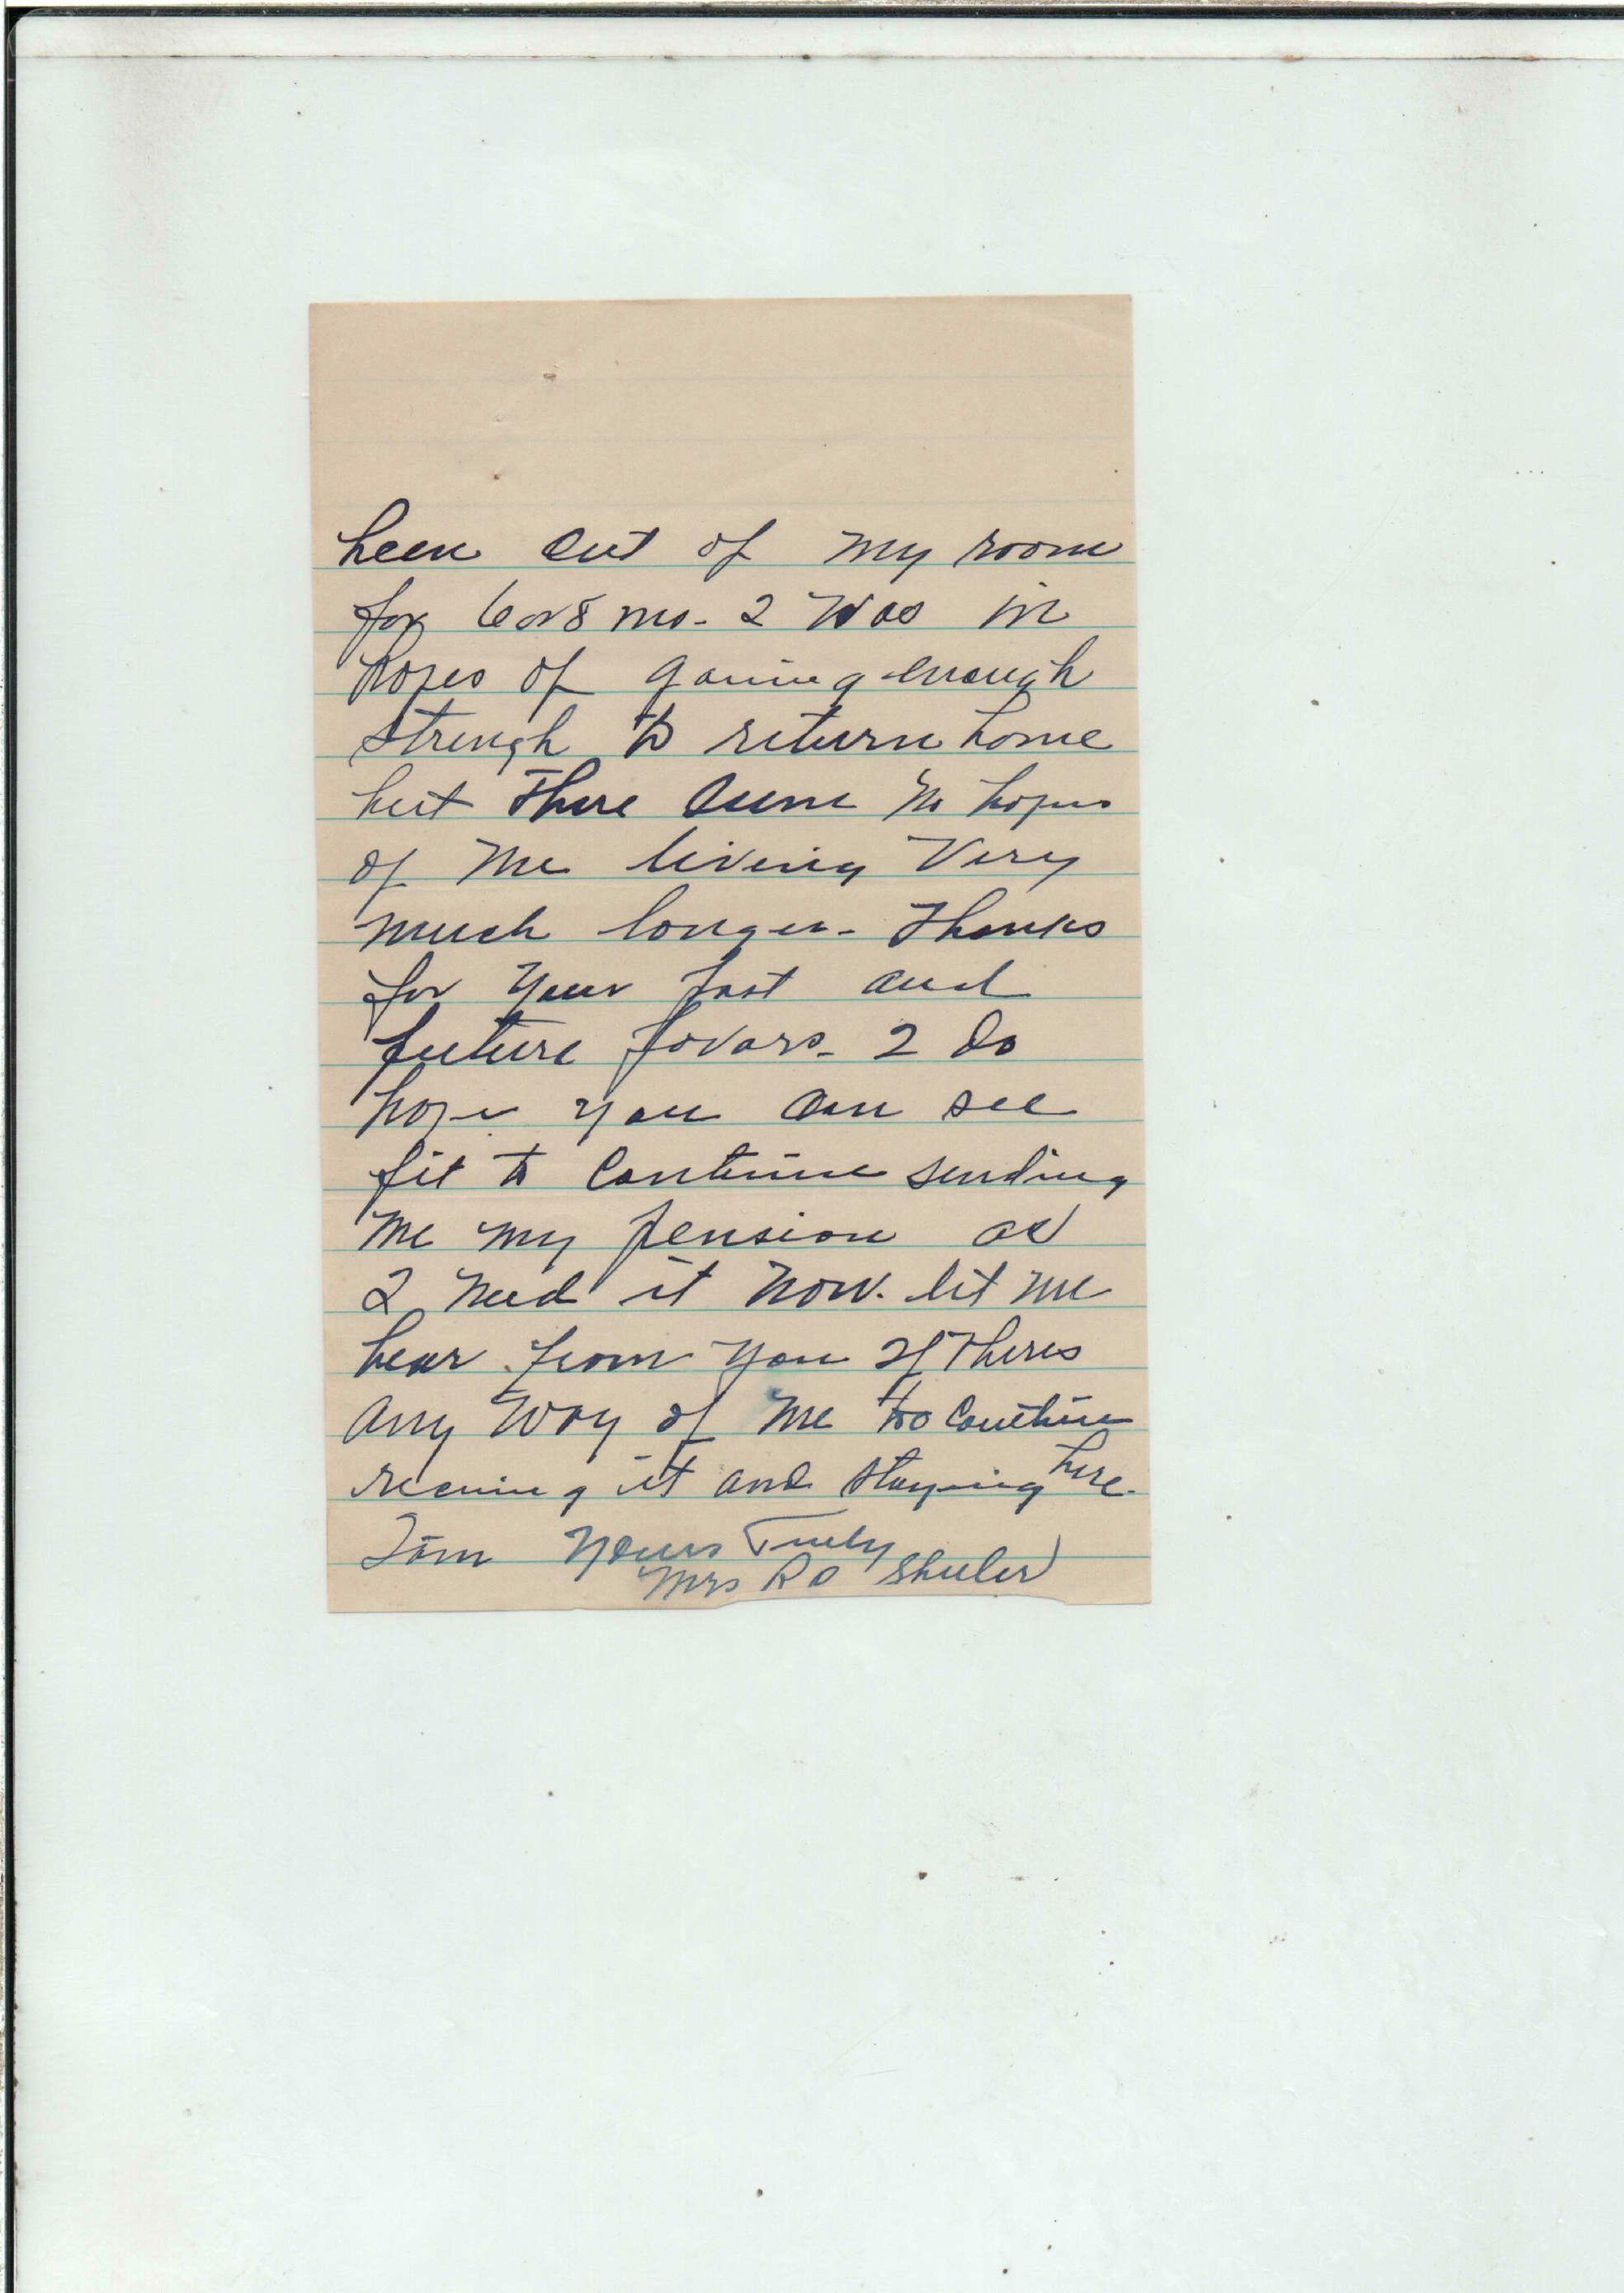 been out of my room
for 6 or 8 mo. I was in
hopes of gaining enough
strengh to return home
but there seem no hopes
of me living very
much longer. Thanks
for your past and
future favors. I do
hope you can see
fit to continue sending
me my pension as
I need it now. let me
hear from you if theres
any way of me to continue
receiving it and staying here.
I am Yours Truly
Mrs R O Shuler